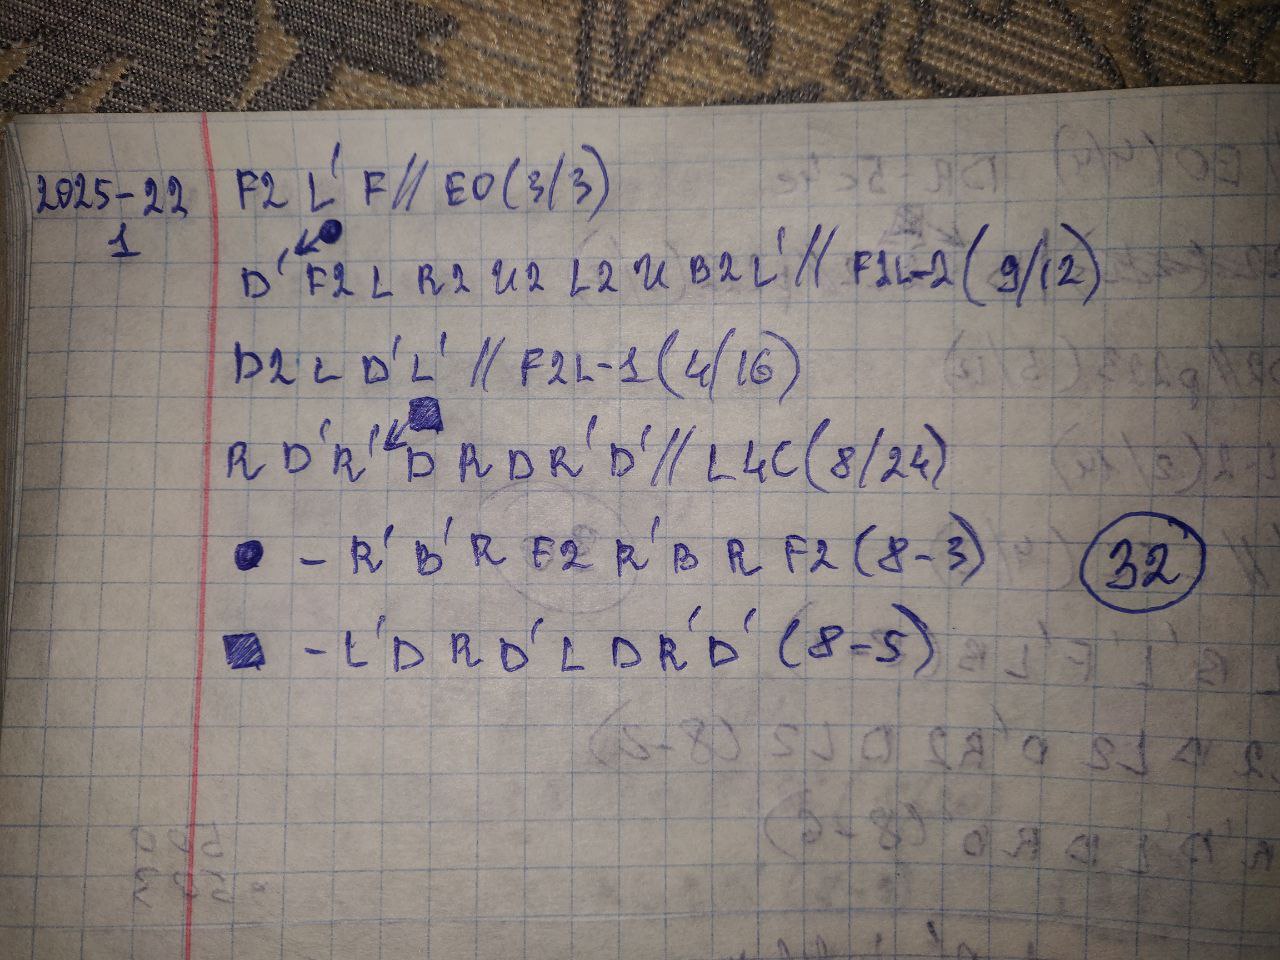 2025-22
1
F2 L' F // EO (3/3)
D' F2 L R2 U2 L2 U B2 L' // F2L-2 (9/12)
D2 L D' L' // F2L-1 (4/16)
R D' R' D R D R' D' // L4C (8/24)
● - R' B' R F2 R' B R F2 (8-3)
32
■ - L' D R D' L D R' D' (8-5)